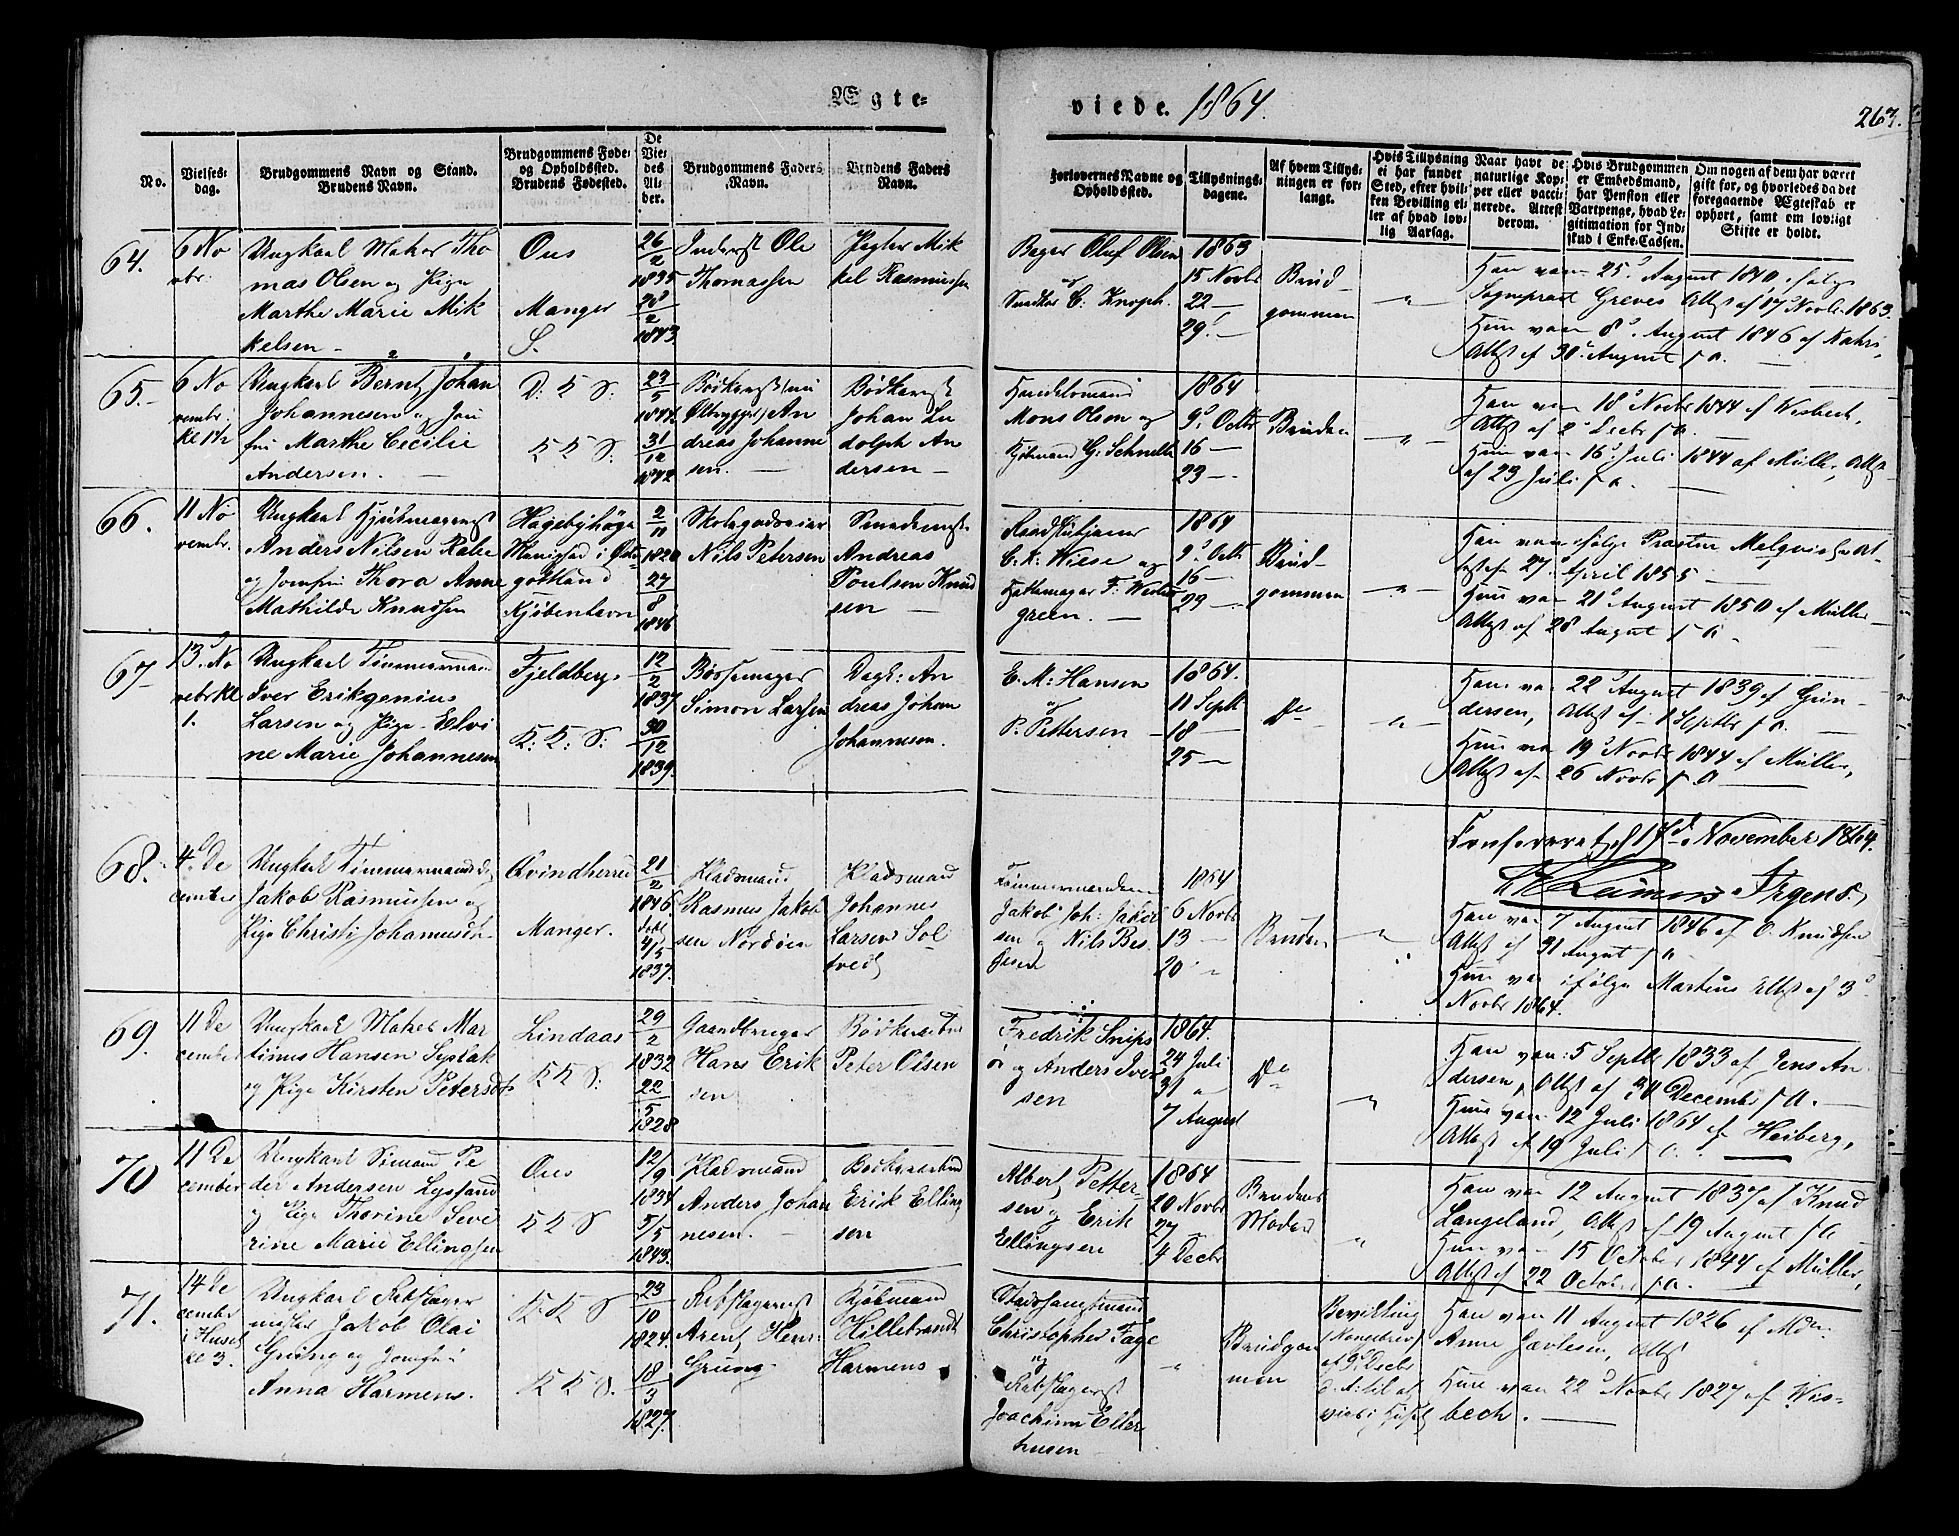 Ægte-
viede. 1864.
263.
No.
Vielses-
dag.
Brudgommens Navn og Stand.
Brudens Navn.
Brudgommens Føde-
og Opholdssted.
Brudens Fødested.
De
Vie-
des
Al-
der.
Brudgommens Faders
Navn.
Brudens Faders
Navn.
Forlovernes Navne og
Opholdssted.
Tillysnings-
dagene.
Af hvem Tillys-
ningen er for-
langt.
Hvis Tillysning
ei har fundet
Sted, efter hvil-
ken Bevilling el-
ler af hvad lov-
lig Aarsag.
Naar havt de
naturlige Kop-
per eller vacci-
nerede. Attest
derom.
Hvis Brudgommen
er Embedsmand,
har Pension eller
Vartpenge, hvad Le-
gitimation for Ind-
skud i Enke-Cassen.
Om nogen af dem har været
gift før, og hvorledes da det
foregaaende Ægteskab er
ophørt, samt om lovligt
Skifte er holdt.
64.
6 No
vbr.
Ungkarl Matros Tho
mas Olsen og Pige
Marthe Marie Mik
kelsen
Ous
Manger
S.
26/2
1835
28/2
1843
Inderst Ole
Thomassen
Jægter Mik
kel Rasmussen
Bager Oluf Olsen
og
C. Knoph.
1863
15 Novbr
22 —
29 —
Brud
gommen
Han vac. 25 August 1840, ifølge
Sognepræst Greves Attest af 17 Novbr 1863.
Hun vac. 8 August 1846 af
Attest af 30 August s. A.
65.
6 No
vembr.
Kl 1½
Ungkarl Bernt Johan
Johannesen og Jom
fru Marthe Cecilie
Andersen.
D: K S:
K K S:
23/5
1844
31/12
1842
Bødkersvd (nu
Ølbrygger) An
dreas Johanne
sen.
Bødkersvd
Johan Lu
dolph An
dersen
Handelsmand
Mons Olsen og
Kjøbmand G. Schnelle
1864
9 Octbr
16 —
23 —
Bruden
Han vac. 18 Novbr 1844 af Wisbech,
Attest af 2 Decbr s. A.
Hun vac. 16 Juli 1844 af Müller, Attest
af 23 Juli s. A.
66.
11 No
vembr.
Ungkarl
Anders Nilsen Rabe
og Jomfru Thora Anne
Mathilde Knudsen
Hagebyhöga
i Øster
gøtland
Kjøbenhavn
2/11
1820
27/8
1846
Nils Petersen
Andreas
Poulsen Knud
sen
C. K. Wiese og
Hattemager F. Wester
green.
1864
9 Octbr
16 —
23 —
Brud
gommen
Han vac. ifølge Præsten Malqvists At
test af 27 April 1855
Hun vac. 21 August 1850 af Müller
Attest af 28 August s. A.
67
13 No
vebr Kl
1.
Ungkarl Tømmermand
Iver Erikgenius
Larsen og Pige Elvi
ne Marie Johannesen
Fjeldberg
K: K: S:
12/2
1837
30/12
1839.
Bøssemager
Simon Larsen
Dagk: An
dreas Johan
Johannesen.
E. M. Hansen
og
P. Pettersen
1864.
11 Septbr
18 —
25 —
Do
Han vac. 22 August 1839 af Gun
dersen, Attest af 1 Septbr s. A.
Hun vac. 19 Novbr 1844 af Müller,
Attest af 26 Novbr s. A.
Confereret, d. 17de November 1864.
68.
4 De
cember
Ungkarl Tømmermandsd.
Jakob Rasmussen og
Pige Christi Johannesdr.
Qvindherred
Manger.
21/2
1846.
døbt
7/5
1837.
Pladsmand
Rasmus Jakob
sen Nordøen
Pladsmand
Johannes
Larsen Sol
tvedt
Tømmermændene
Jakob Joh: Jakob
sen og Nils Bes
sesen
1864
6 Novbr
13 —
20 "
Bruden
Han vac. 7 August 1846 af O. Knudsen
Attest af 31 August s. A.
Hun vac. ifølge Martens Attest af 3
Novbr 1864.
69.
11 De
cember
Ungkarl Matros Mar
tinus Hansen Syslak
og Pige Kirsten Petersdr.
Lindaas
K K S:
29/2
1832
22/5
1828
Gaardbruger
Hans Erik
sen
Bødkersvend
Peter Olsen
Fredrik Snips
ør og Anders Iver
sen
1864.
24 Juli
31 "
7 August
Do
Han vac. 5 Septbr 1833 af Jens An
dersen, Attest af 31 December s. A.
Hun vac. 12 Juli 1864 af Heiberg,
Attest af 19 Juli s. A.
70
11 De
cember
Ungkarl Simand Pe
der Andersen Lyssand
og Pige Thorine Sevi
rine Marie Ellingsen
Ous
K K S
12/9
1834
5/5
1843.
Pladsmand
Anders Johan
nesen.
Erik Elling
sen
Albert Petter
sen og Erik
Ellingsen
1864
20 Novbr
27
4 Decbr
Brudens
Moder
Han vac 12 August 1837 af Knud
Langeland, Attest af 19 August s. A
Hun vac. 15 October 1844 af Müller,
Attest af 22 October s. A.
71.
14 De
cember
i Huset
kl 3.
Ungkarl Rebslager
mester Jakob Olai
Grung og Jomfru
Anna Harmens.
K. K S
K K S.
23/10
1824.
18/3
1827.
Rebslagermst
Arent Hen:
Grung
Kjøbmand
Hillebrandt
Harmens
Stadshauptmand
Christopher Faye
og
Rebslagermst
Joachim Eller
husen
Brudgom
men
Bevilling
(Kongebrev)
af 9 Decbr
d. A. til at
vies i Huset
Han vac. 11 August 1826 af Mdm.
Anne Jarlesen, Attest
Hun vac. 22 Novbr 1827 af Wis
bech.